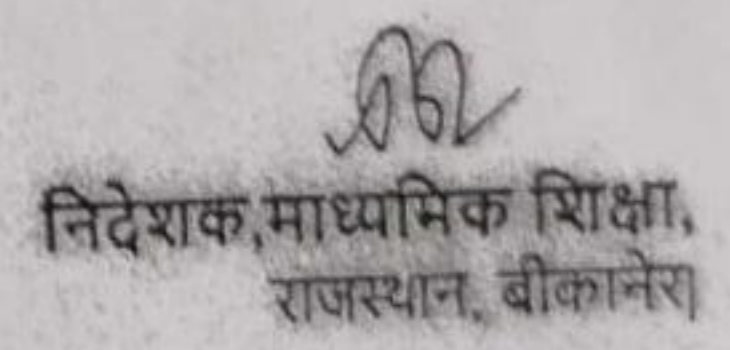 निदेशक,माध्यमिक शिक्षा,
राजस्थान, बीकानेर।